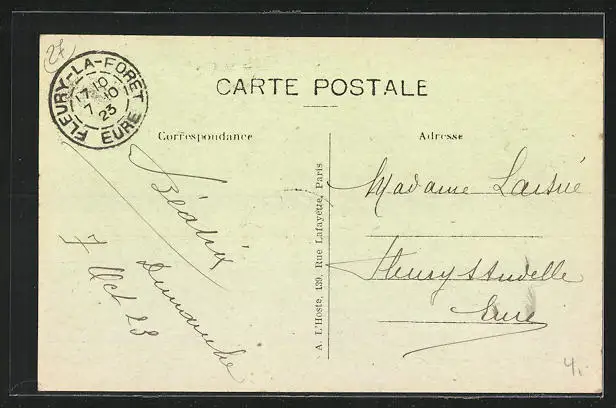 27
FLEURY-LA-FORET
17 10
7 10
23
EURE
CARTE POSTALE
Correspondance
Adresse
Béatrix
Dimanche
7 Oct 23
A. L'Hoste, 139, Rue Lafayette, Paris
Madame
Fleury s Andelle
Eure
4.